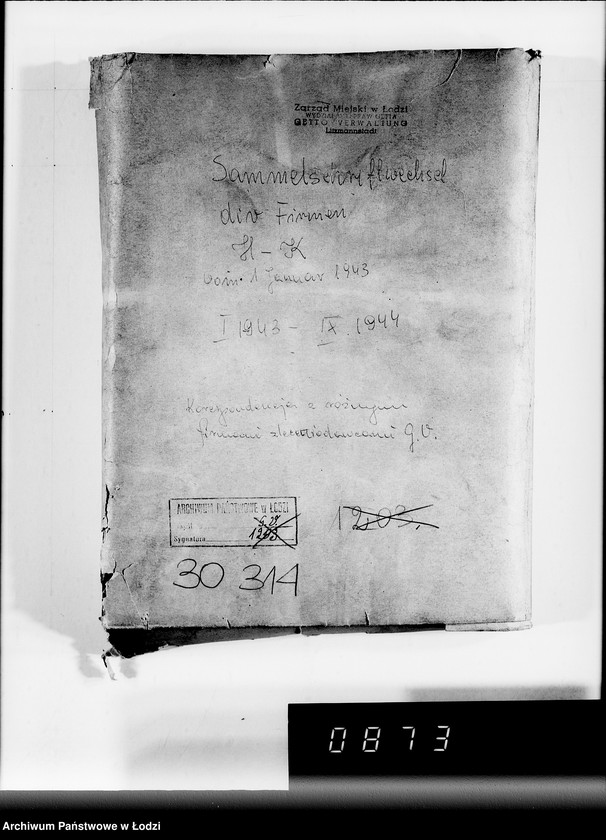 Zarząd Miejski w Łodzi
WYDZIAŁ SPRAW GETTA
GETTO VERWALTUNG
Litzmannstadt
Sammelschriftwechsel
div Firmen
H - K
vom 1 Januar 1943
I 1943 - IX. 1944
Korespondencja z różnymi
firmami zleceniodawcami G.V.
ARCHIWUM PAŃSTWOWE w ŁODZI
Sygnatura 1203
1203.
30 314
0873
Archiwum Państwowe w Łodzi